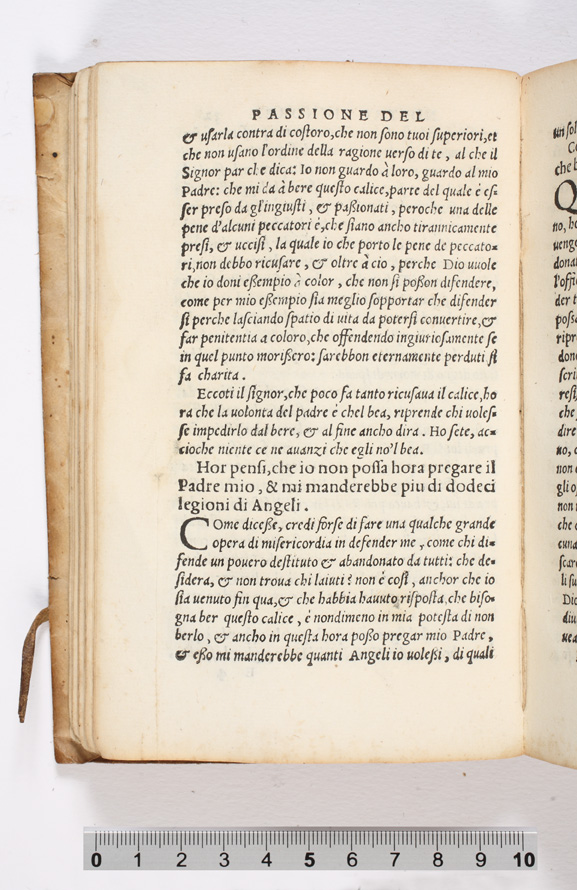 PASSIONE DEL
& uſarla contra di coſtoro,che non ſono tuoi ſuperiori,et
che non uſano l'ordine della ragione uerſo di te , al che il
Signor par che dica: Io non guardo à loro, guardo al mio
Padre: che mi da à bere queſto calice,parte del quale é eſ=
ſer preſo da gl'ingiuſti , & paßionati , peroche una delle
pene d'alcuni peccatori é,che ſiano ancho tirannicamente
preſi, & ucciſi , la quale io che porto le pene de peccato=
ri,non debbo ricuſare , & oltre à cio , perche Dio uuole
che io doni eßempio à color , che non ſi poßon difendere,
come per mio eßempio ſia meglio ſopportar che difender
ſi perche laſciando ſpatio di uita da poterſi conuertire,&
far penitentia a coloro,che offendendo ingiurioſamente ſe
in quel punto morißero: ſarebbon eternamente perduti ſi
fa charita .
Eccoti il ſignor,che poco fa tanto ricuſaua il calice,ho
ra che la uolonta del padre é chel bea, riprende chi uoleſ=
ſe impedirlo dal bere, & al fine ancho dira . Ho ſete, ac=
cioche niente ce ne auanzi che egli no'l bea.
Hor penſi,che io non poſſa hora pregare il
Padre mio , & mi manderebbe piu di dodeci
legioni di Angeli .
COme diceße, credi forſe di fare una qualche grande
opera di miſericordia in defender me , come chi di=
fende un pouero deſtituto & abandonato da tutti: che de=
ſidera, & non troua chi l'aiuti? non é coſi , anchor che io
ſia uenuto fin qua,& che habbia hauuto riſpoſta,che biſo=
gna ber queſto calice , é nondimeno in mia poteſta di non
berlo , & ancho in queſta hora poßo pregar mio Padre ,
& eßo mi manderebbe quanti Angeli io uoleßi , di quali
0 1 2 3 4 5 6 7 8 9 10 cm